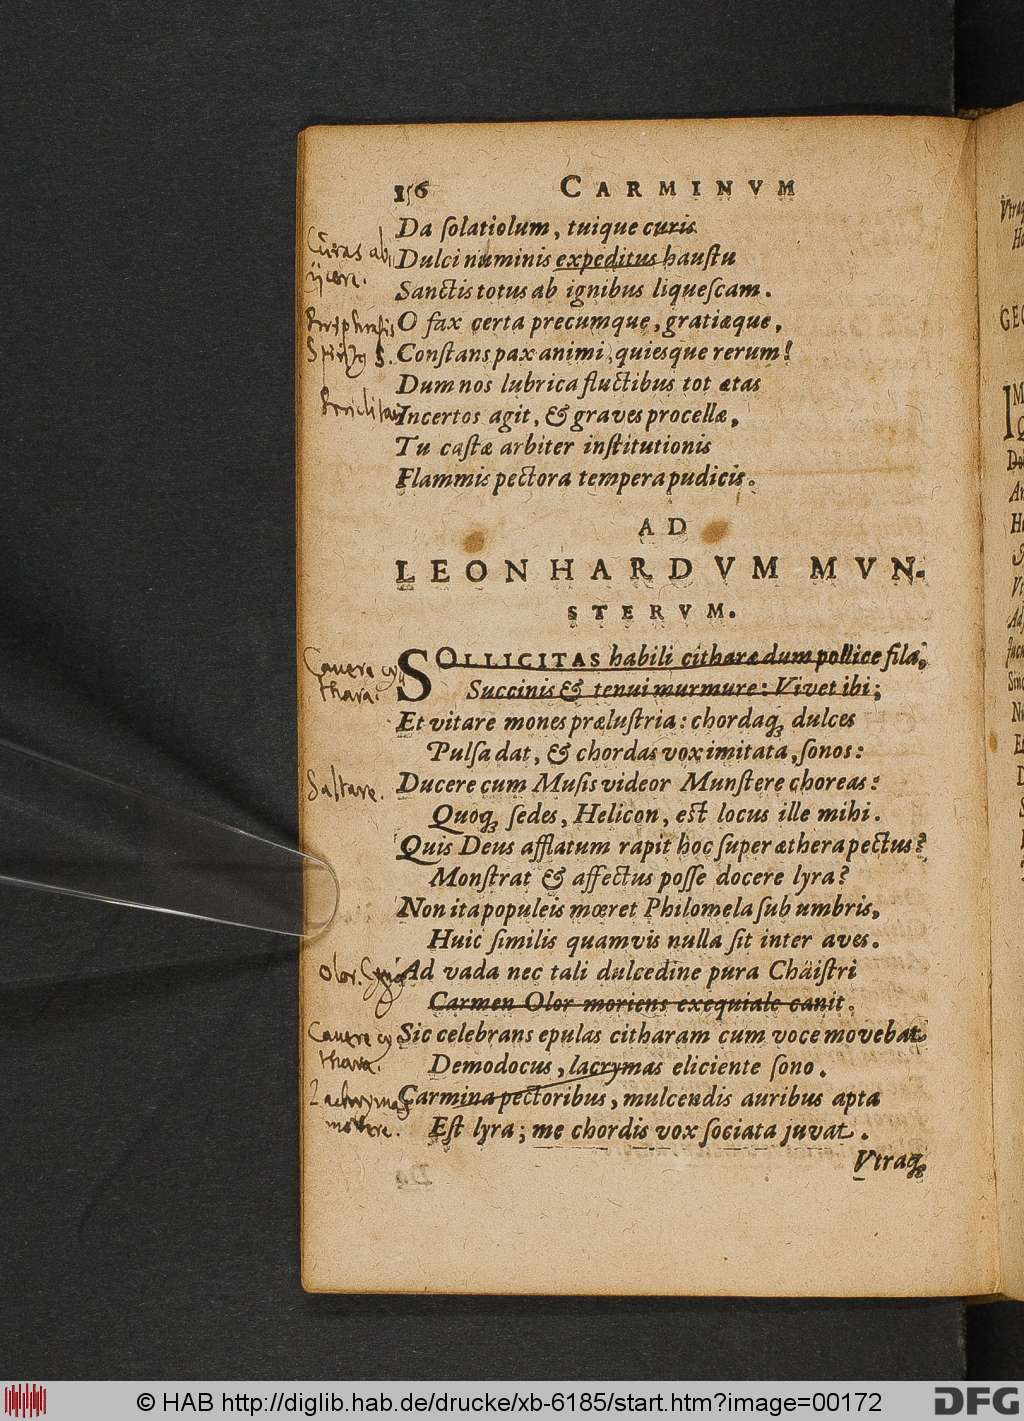 156 CARMINVM
Da ſolatiolum, tuique curis
Dulci numinis expeditus hauſtu
Sanctis totus ab ignibus liqueſcam.
O fax certa precumque, gratiæque,
Conſtans pax animi, quiesque rerum!
Dum nos lubrica fluctibus tot ætas
Incertos agit, & graves procellæ,
Tu caſtæ arbiter inſtitutionis
Flammis pectora tempera pudicis.
AD
LEONHARDVM MVN-
STERVM.
SOLLICITAS habili citharæ dum pollice fila,
Succinis & tenui murmure: Vivet ibi;
Et vitare mones præluſtria: chordaqꝫ dulces
Pulſa dat, & chordas vox imitata, ſonos:
Ducere cum Muſis videor Munſtere choreas:
Quoqꝫ ſedes, Helicon, eſt locus ille mihi.
Quis Deus afflatum rapit hoc ſuper æthera pectus?
Monſtrat & affectus poſſe docere lyra?
Non ita populeis mœret Philomela ſub umbris,
Huic ſimilis quamvis nulla ſit inter aves.
Ad vada nec tali dulcedine pura Chäiſtri
Carmen Olor moriens exequiale canit.
Sic celebrans epulas citharam cum voce movebat
Demodocus, lacrymas eliciente ſono.
Carmina pectoribus, mulcendis auribus apta
Eſt lyra; me chordis vox ſociata juvat.
Vtraqꝫ
Curas ab
ijcere.
Periphrasis
Canere cy
thara.
Saltare.
Olor.
Canere cy
thara.
Lachrymas
movere.
© HAB http://diglib.hab.de/drucke/xb-6185/start.htm?image=00172
DFG